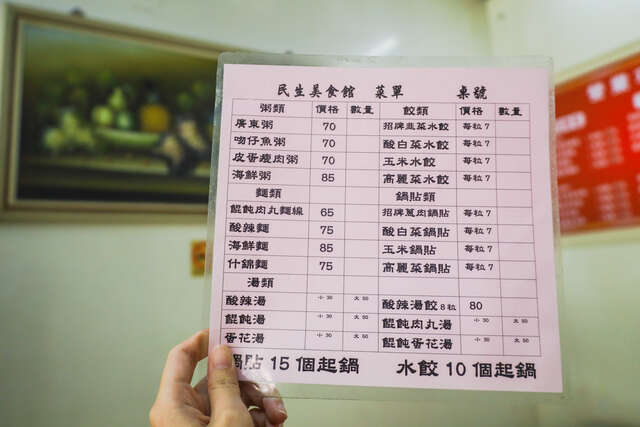 民生美食館 菜單 桌號
粥類 價格 數量 餃類 價格 數量
廣東粥 70 招牌韭菜水餃 每粒7
吻仔魚粥 70 酸白菜水餃 每粒7
皮蛋瘦肉粥 70 玉米水餃 每粒7
海鮮粥 85 高麗菜水餃 每粒7
麵類 鍋貼類
餛飩肉丸麵線 65 招牌蔥肉鍋貼 每粒7
酸辣麵 75 酸白菜鍋貼 每粒7
海鮮麵 85 玉米鍋貼 每粒7
什錦麵 75 高麗菜鍋貼 每粒7
湯類
酸辣湯 小30 大50 酸辣湯餃8粒 80
餛飩湯 小30 大50 餛飩肉丸湯 小30 大50
蛋花湯 小30 大50 餛飩蛋花湯 小30 大50
鍋貼15個起鍋 水餃10個起鍋